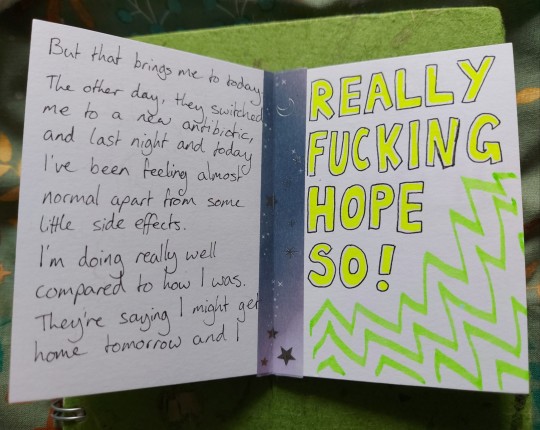 But that brings me to today.
The other day, they switched
me to a new antibiotic,
and last night and today
I've been feeling almost
normal apart from some
little side effects.
I'm doing really well
compared to how I was.
They're saying I might get
home tomorrow and I
REALLY
FUCKING
HOPE
SO!